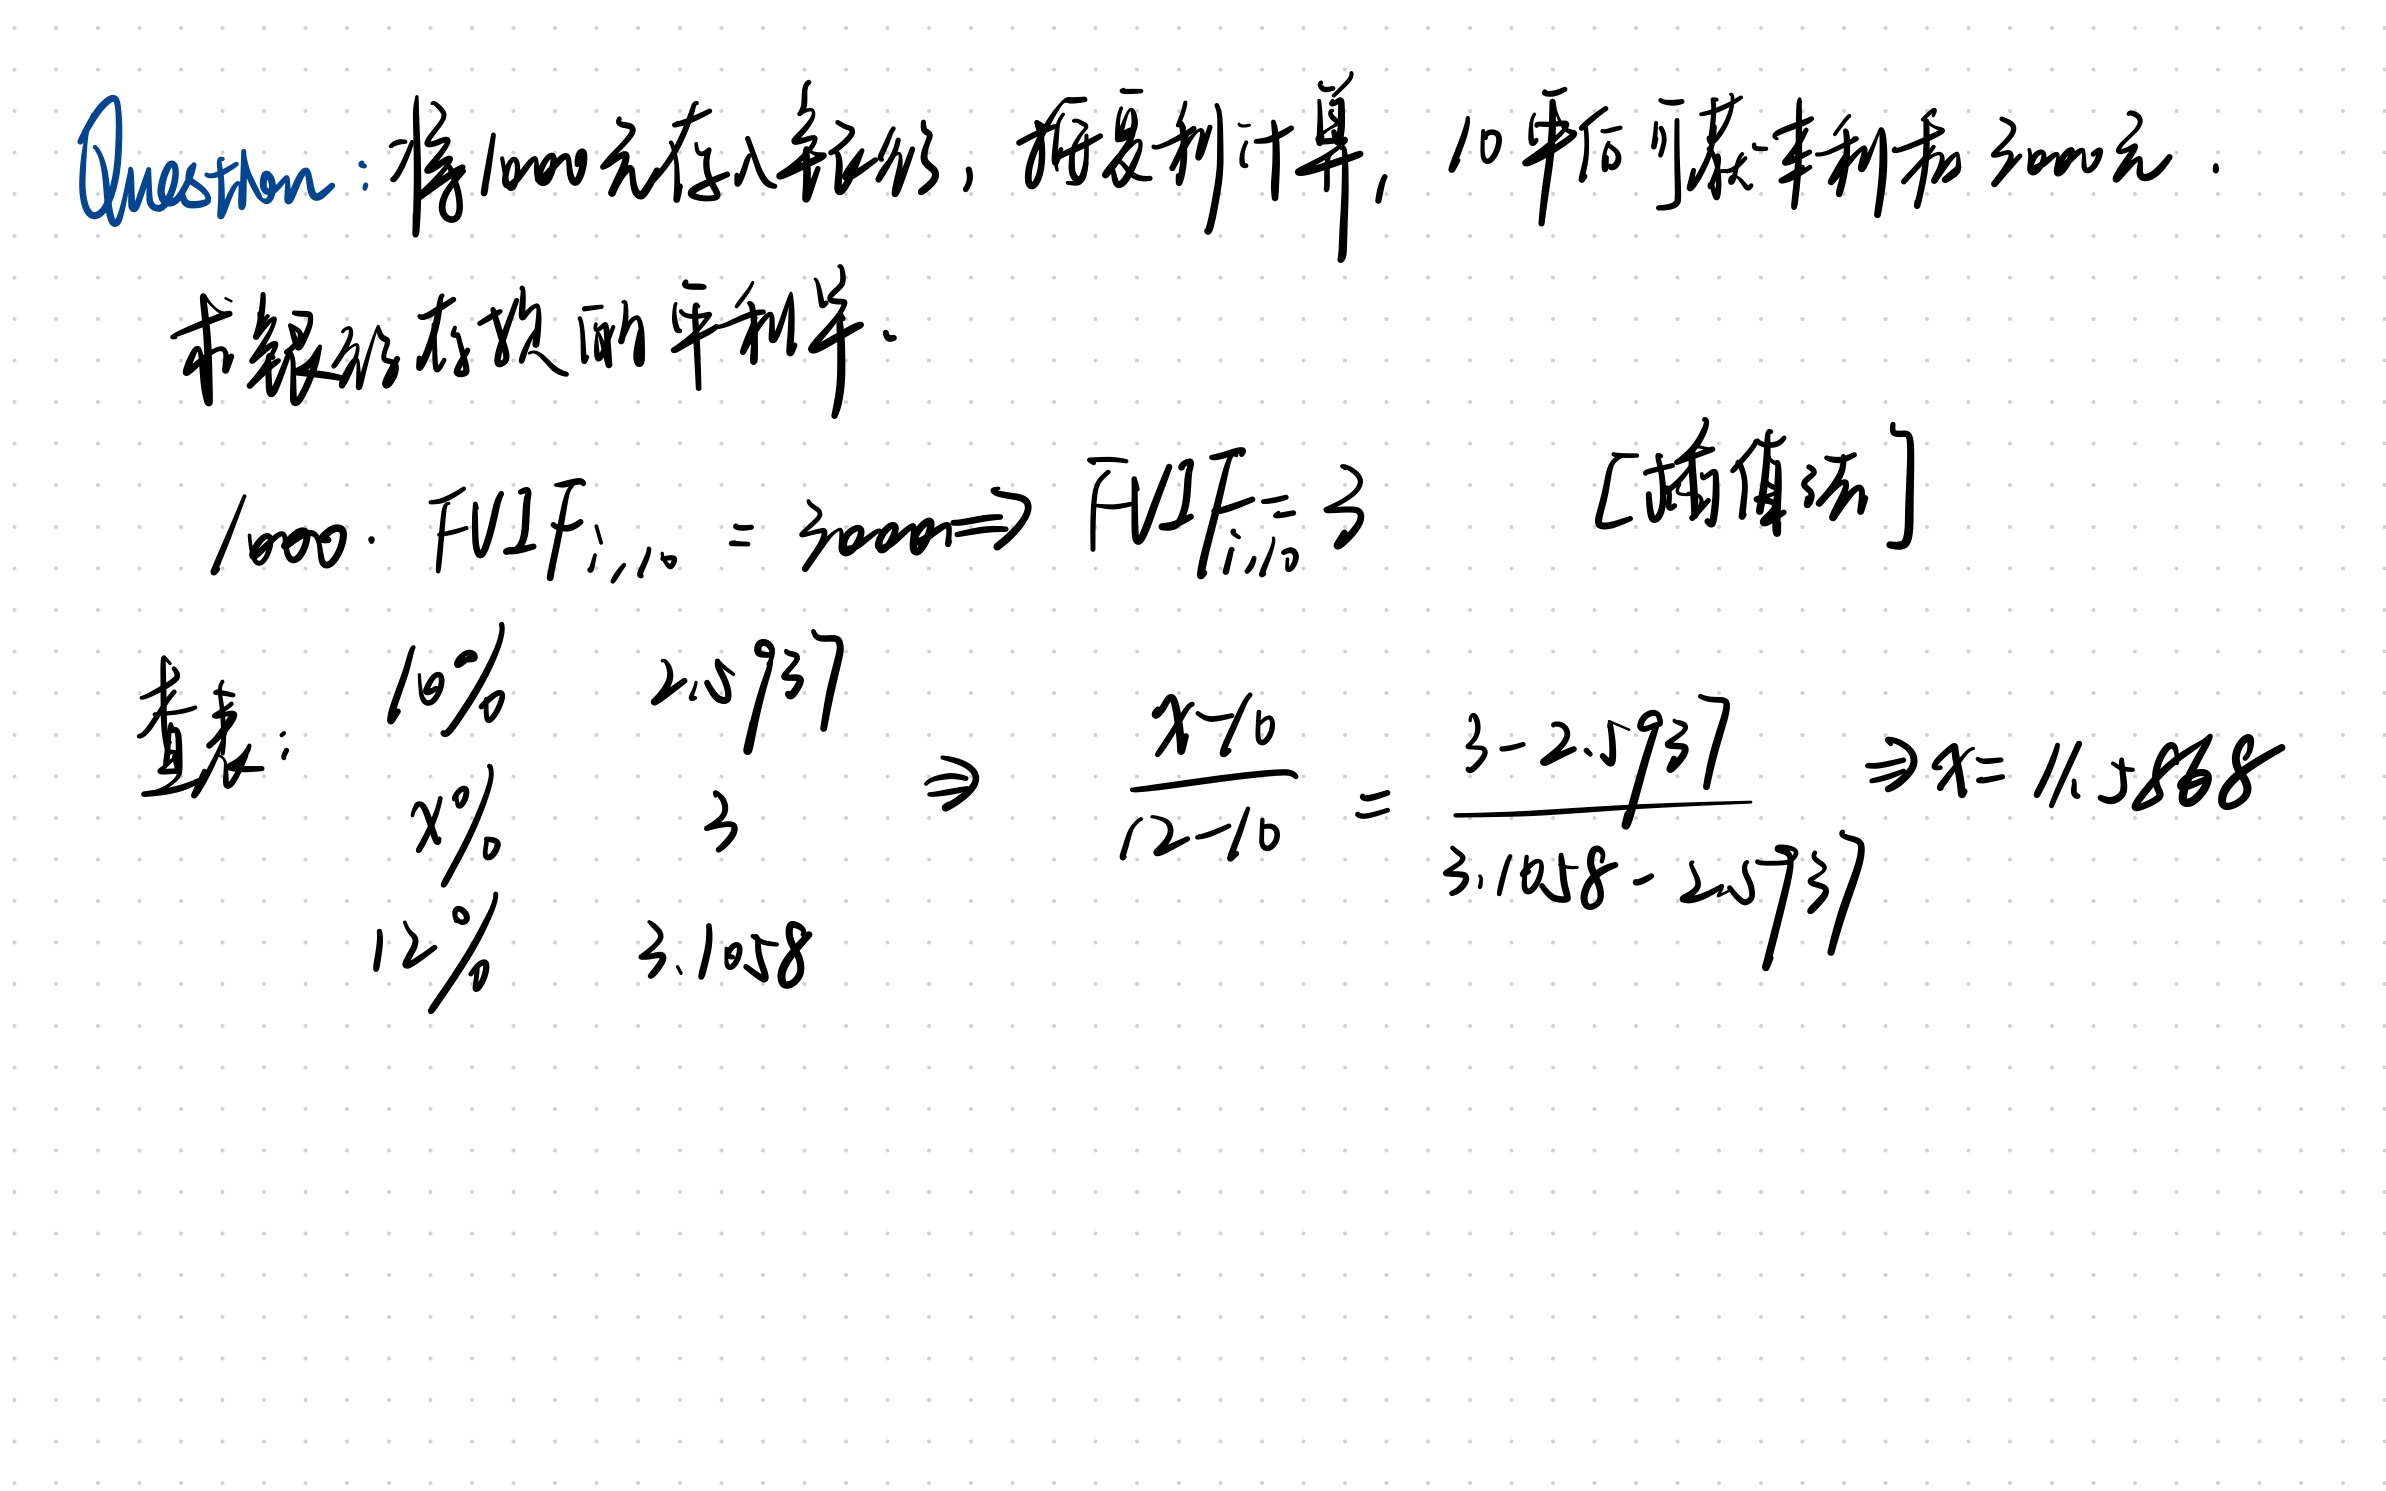 Question: 将1000元存入银行, 按复利计算, 10年后可获本利和3000元.
求银行存款的年利率.
1000·FVIF_{i,10} = 3000 ⇒ FVIF_{i,10} = 3 [插值法]
查表: 10% 2.5937
x% 3 ⇒ \frac{x-10}{12-10} = \frac{3-2.5937}{3.1058-2.5937} ⇒ x = 11.5868
12% 3.1058